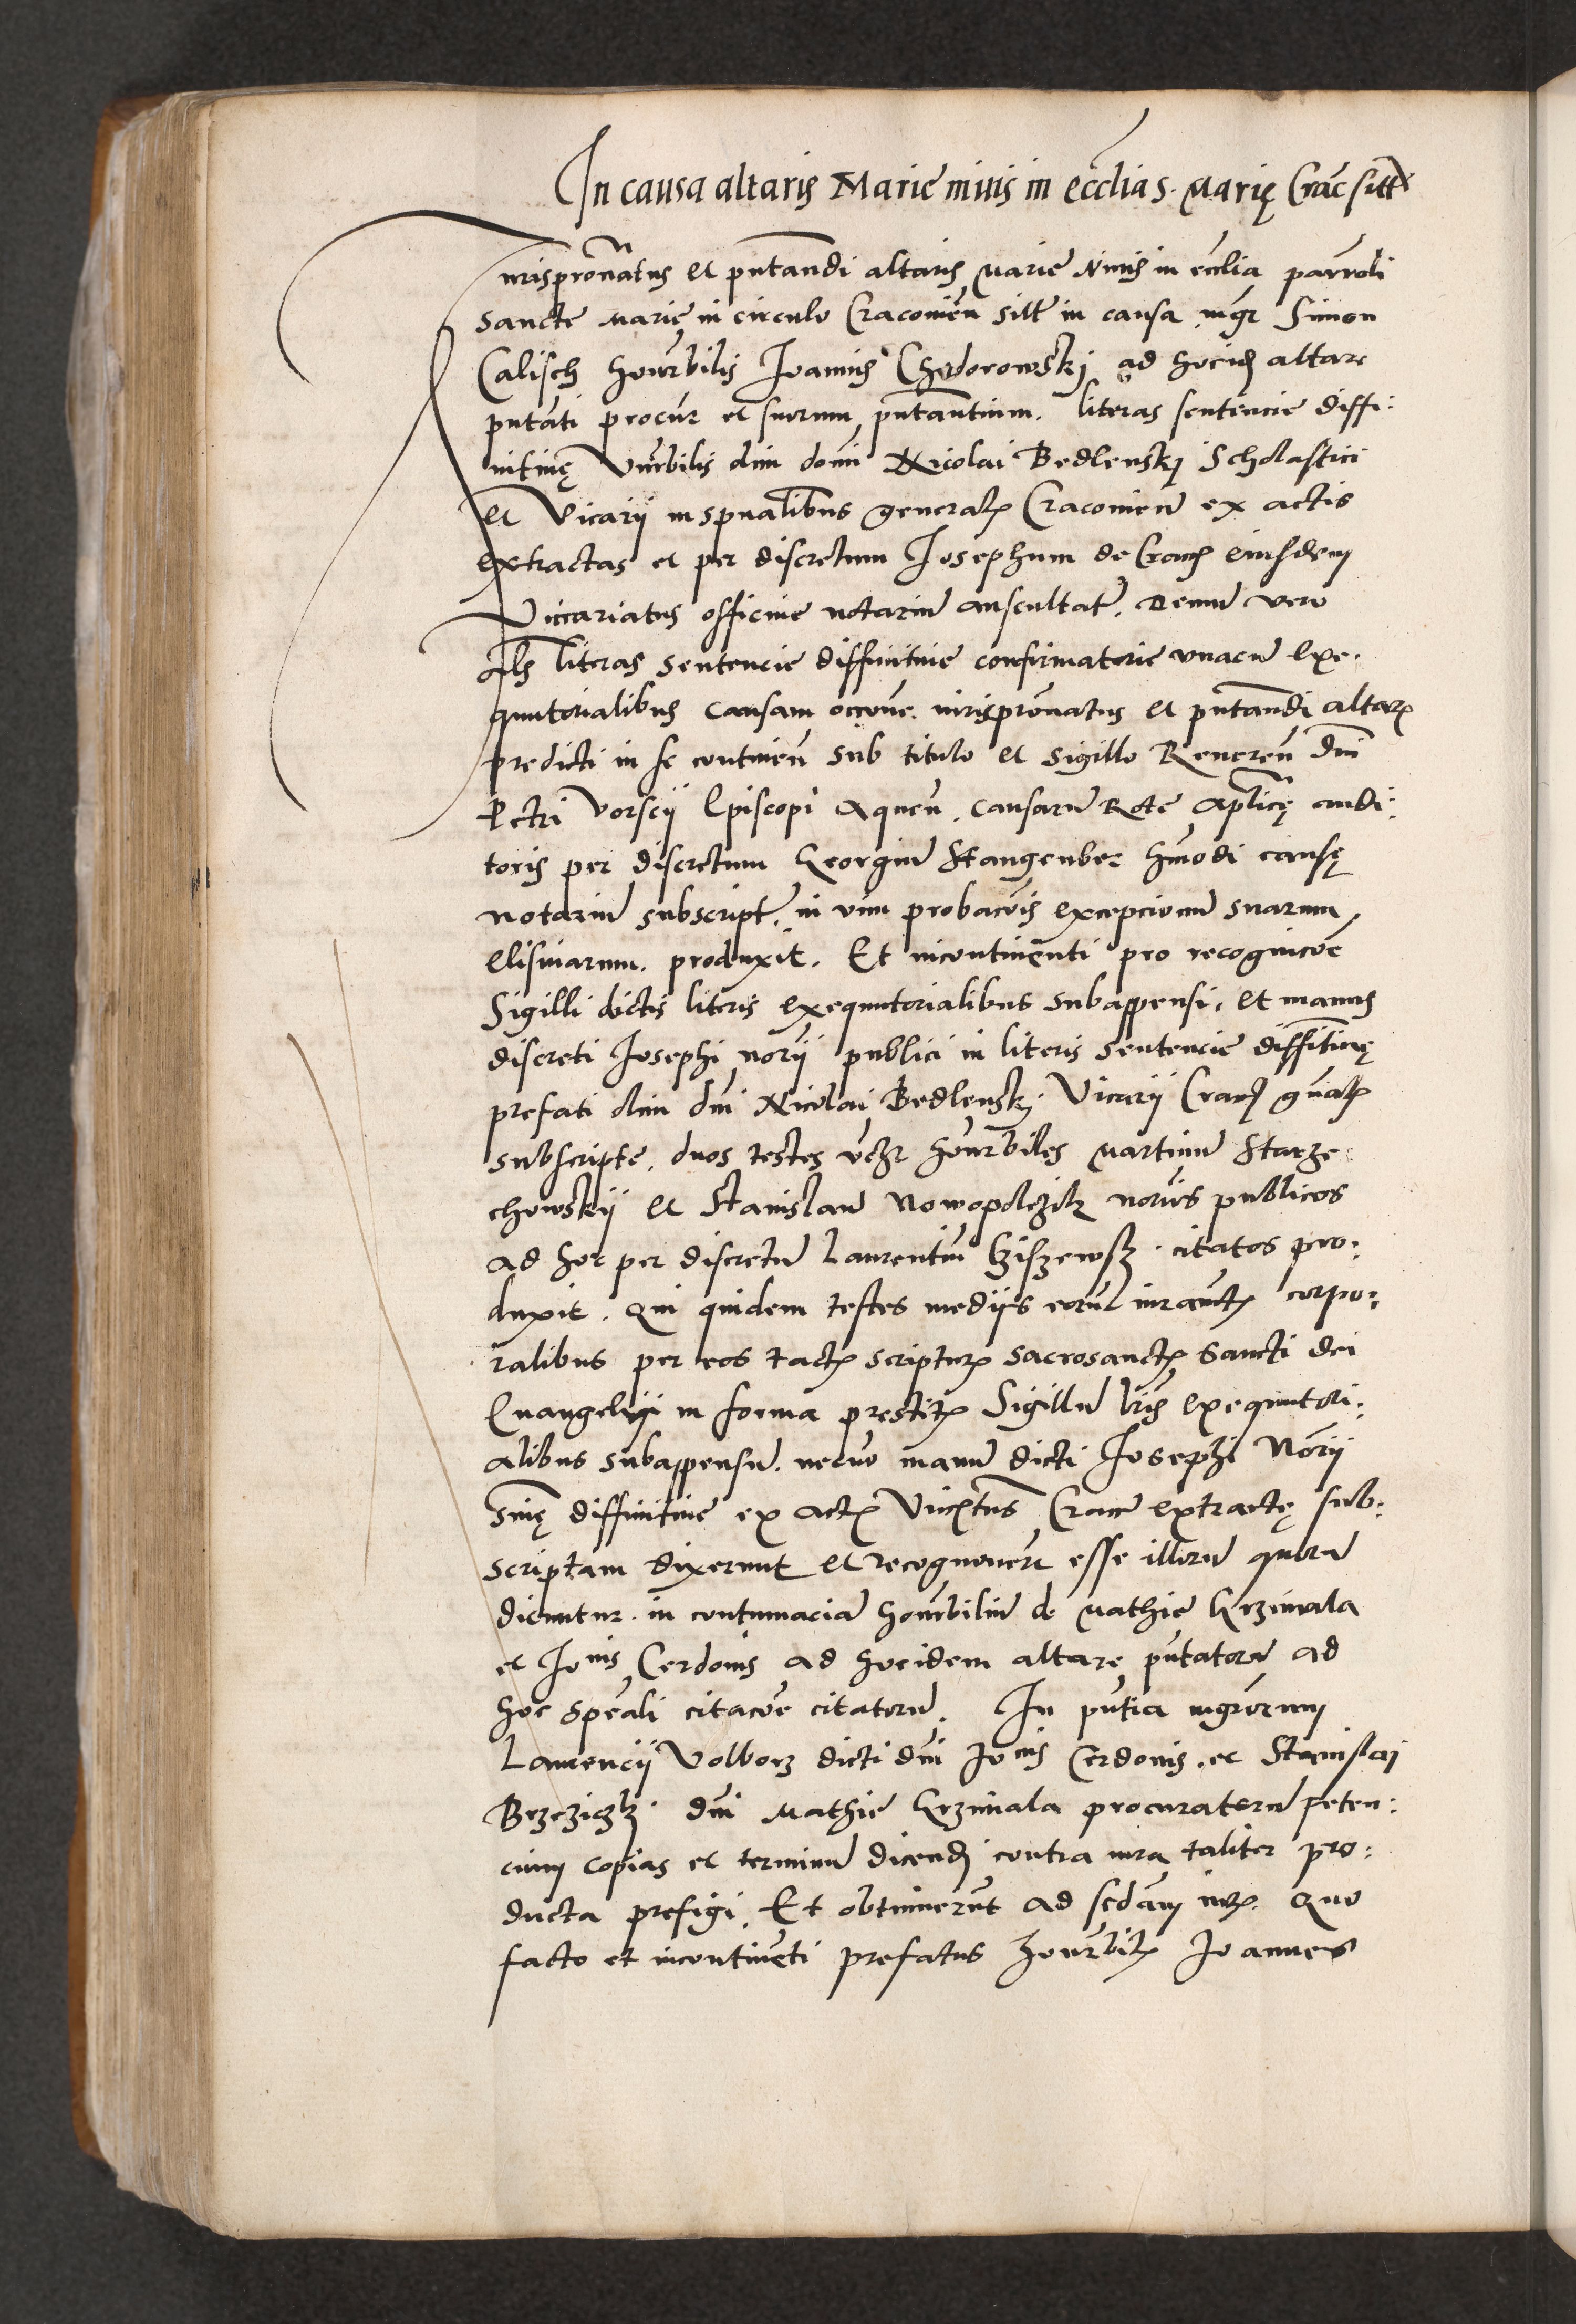 In causa altaris Marie niuis in eccl̄ia S. Marię Crac̄ sitt
Iurispron̄atus et pn̄tandi altaris Marie Niuis in eccl̄ia parroli
Sancte Marię in circulo Cracouien̄ sitt̄ in causa mg̅r Simon
Calisch hon̄rbilis Ioannis Chodorowskj ad hocid̄ altare
pn̄tati procur̄ et suorum pn̄tantium. literas sentencie diffi:
nitiuę Vn̄rbilis olim domi Nicolai Bedlenskj Scholastici
et Vicarij in sp̄ualibus general̄ Cracouien̄ ex actis
extractas et per discretum Iosephum de Crac̄ eiusdem
Viccariatus officine notariū auscultat̄. Demū vero
al̄s literas sentencie diffinitiuie confirmatorie vnacū exe:
quutorialibus causam occōne iurispron̄atus et pn̄tandi altar̄
predicti in se continen̄ sub titulo et sigillo Reueren̄ dn̄i
Petri Vorscij Episcopi Aquen̄. causarū Rote Ap̄licę audi:
toris per discretum Georgiū Stangenber hm̄odi causę
notariū subscript̄. in vim probacōis excepcionū suarum
elisiuarum. produxit. Et incontinenti pro recognicōe
Sigilli dictis literis exequutorialibus subappensi. et manus
discreti Iosephi nor̄ij publici in literis sentencie diffi̅tiuę
prefati olim dn̄i Nicolai Bedlenskj Vicarij Crac̄ gn̄al̄
subscripte. duos testes vꝫ hon̄rbiles Martinū Starze:
chowskij et Stanislaū Nowopolczik nor̄ios publicos
ad hoc per discretū Laurentiū citatos pro:
duxit. Qui quidem testes medijs eorū iuramt̄ corpo:
ralibus per eos tact̄ scriptur̄ sacrosanct̄ Sancti dei
Euangelij in forma prestit̄ Sigillū lr̄is exequutori:
alibus subappensū. necno manū dicti Iosephi Nor̄ij
Sn̄ię diffinitiuie ex act̄ Vic̄rtus Crac̄ extractę sub:
scriptam dixerunt et recognouer̄t esse illorū quorū
dicuntur. in contumaciā hon̄rbiliū d. Mathie Grzimala
et Ioīnis Cerdonis ad hocidem altare pn̄tatorū ad
hoc sp̄eali citacōe citatorū. In pn̄tia mgr̄orum
Laurencij Volborz dicti dn̄i Ioīnis Cerdonis. et Stanislai
Brzeziczkj dn̄i Mathie Grzimala procuratorū peten:
cium copias et terminū dicend̄ contra iura taliter pro:
ducta prefigi. Et obtinuerūt ad scd̄am iur̄. Quo
facto et incontinēti prefatus honr̄bil̄ Ioannes